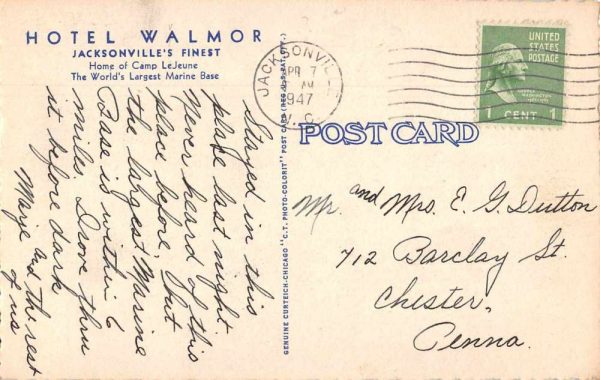 HOTEL WALMOR
JACKSONVILLE'S FINEST
Home of Camp LeJeune
The World's Largest Marine Base
Stayed in this
place last night.
Never heard of this
place before but
the largest Marine
Base is within 6
miles. Drove thru
it before dark
Marj. and the rest
of us
GENUINE CURTEICH-CHICAGO "C.T. PHOTO-COLORIT" POST CARD (REG. U.S. PAT. OFF.)
JACKSONVILLE
APR 7
AM
1947
N.C.
UNITED
STATES
POSTAGE
1 CENT 1
POST CARD
Mr. and Mrs. E. G. Dutton
712 Barclay St.
Chester,
Penna.